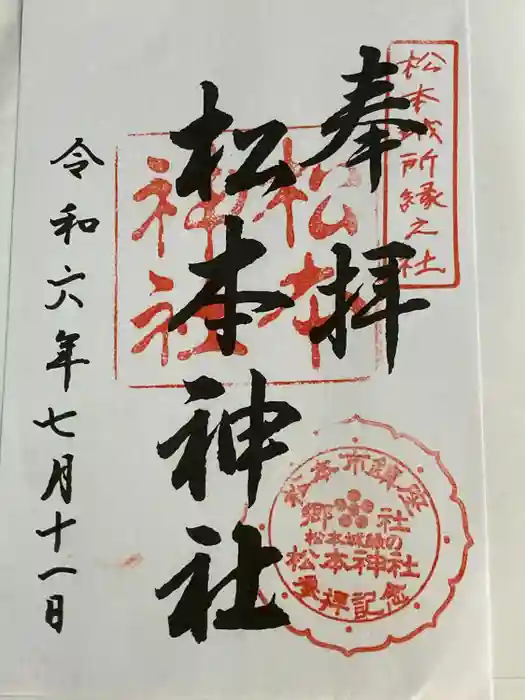 松本城所縁之社
奉拝
松本
神社
松本神社
令和六年七月十一日
松本市鎮座
郷社
松本城縁の
松本神社
参拝記念